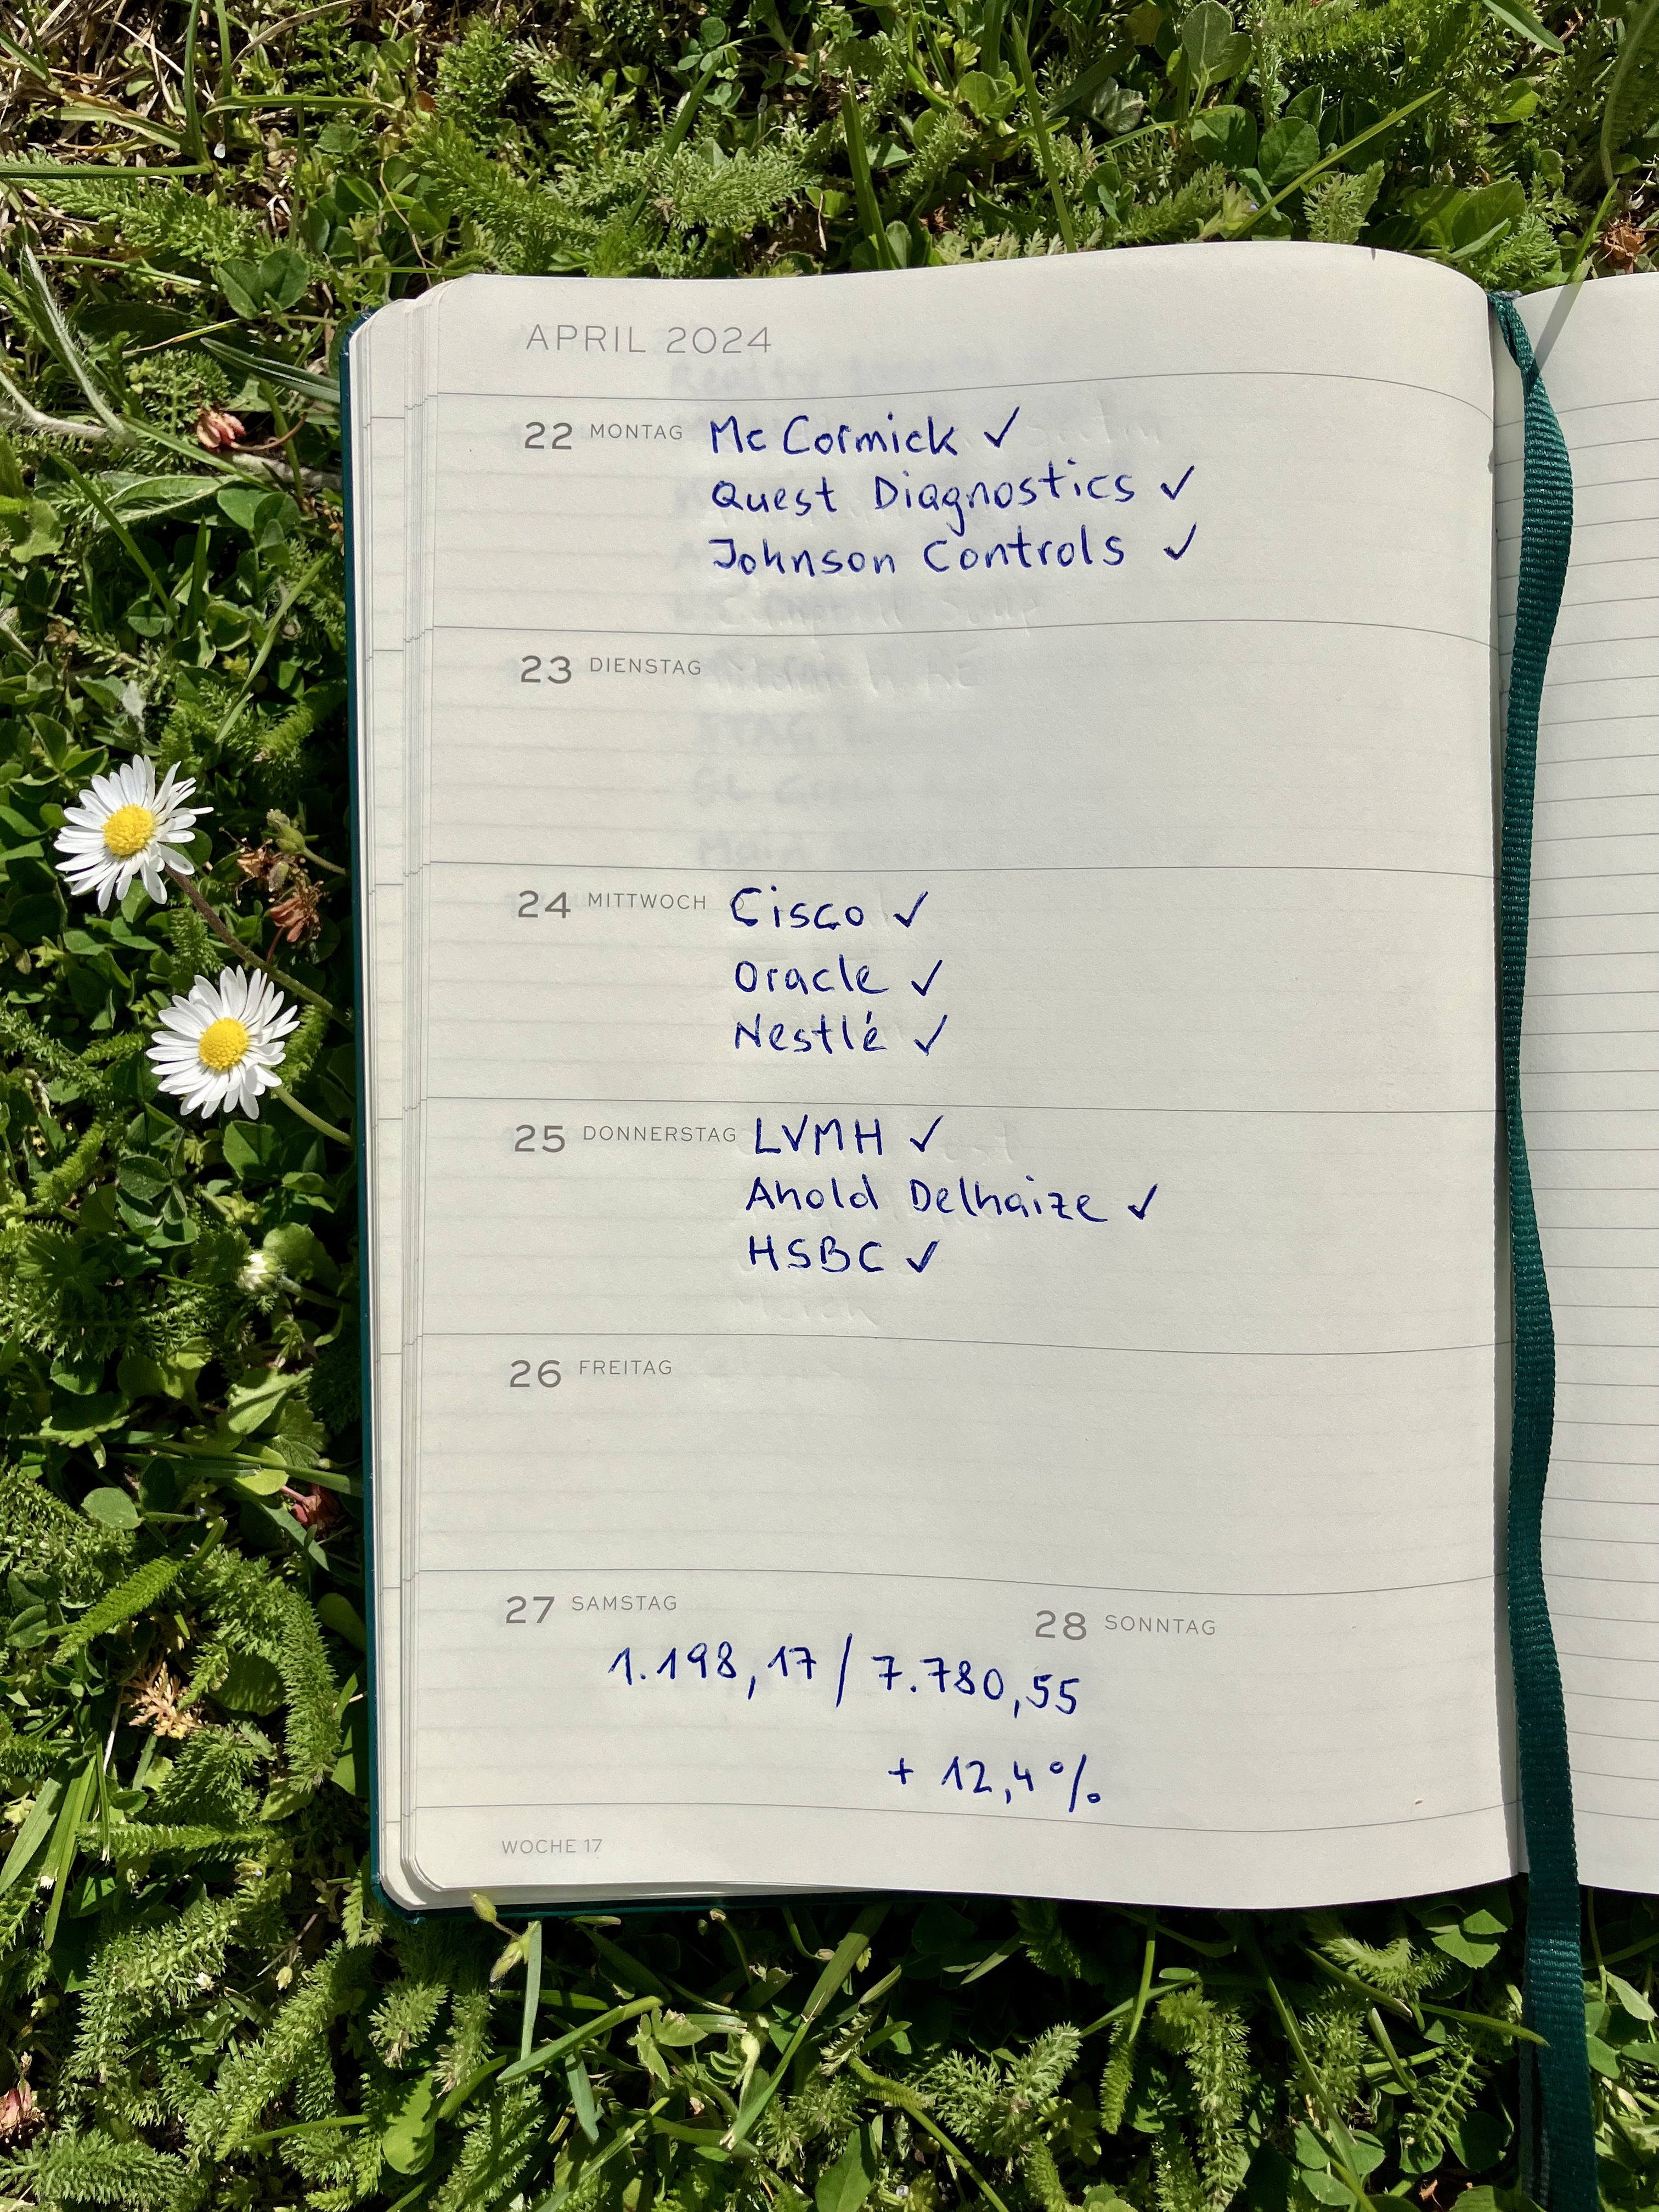 APRIL 2024
22 MONTAG Mc Cormick ✓
Quest Diagnostics ✓
Johnson Controls ✓
23 DIENSTAG
24 MITTWOCH Cisco ✓
Oracle ✓
Nestlé ✓
25 DONNERSTAG LVMH ✓
Ahold Delhaize ✓
HSBC ✓
26 FREITAG
27 SAMSTAG 28 SONNTAG
1.198,17 / 7.780,55
+ 12,4%
WOCHE 17